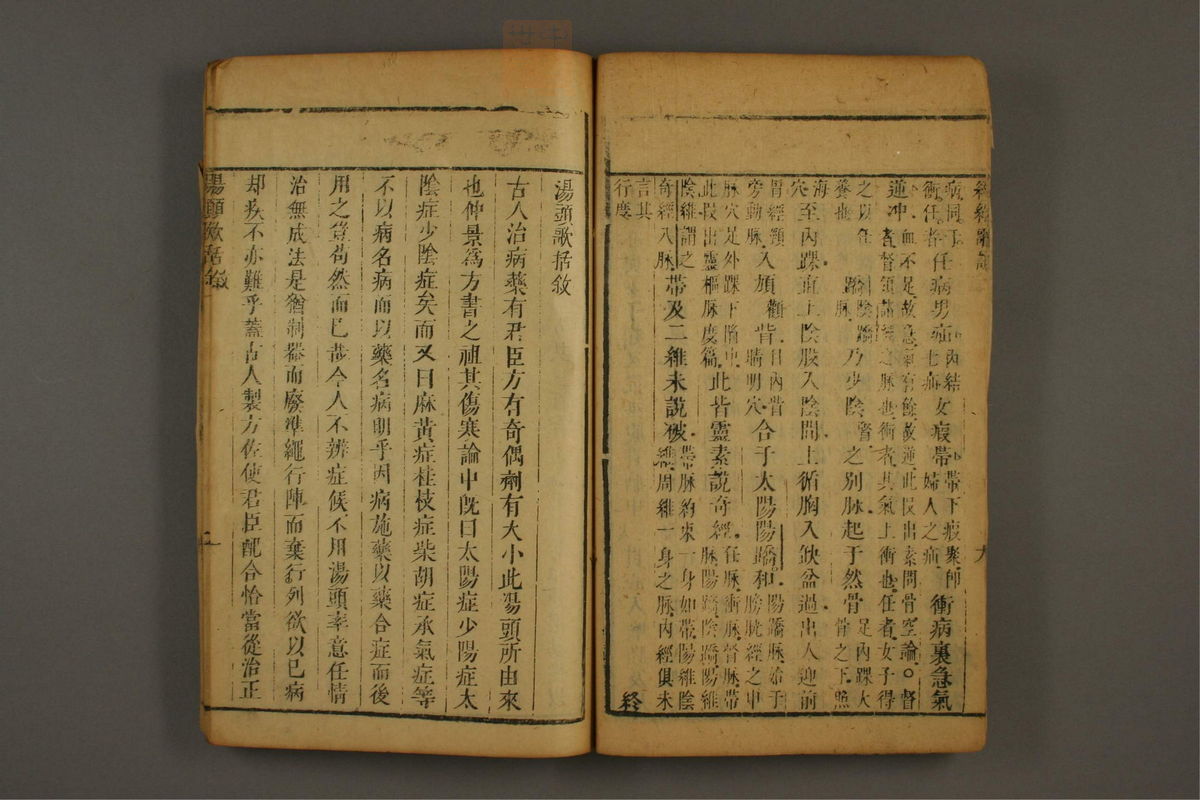 經絡歌訣
六
病同于衝任者任病男疝內結七疝女瘕帶帶下瘕聚即婦人之疝衝病裏急氣
逆冲血不足故急氣有餘故逆此段出素問骨空論○督者督領諸經之脉也衝者其氣上衝也任者女子得
之以任養也蹻陰蹻脉乃少陰腎之別脉起于然骨足內踝大骨之下照
海穴至內踝直上陰股入陰間上循胸入缺盆過出人迎前
胃經頸旁動脉入頄顴眥目內眥睛明穴合于太陽陽蹻和陽蹻脉始于膀胱經之申
脉穴足外踝下陷中此段出靈樞脉度篇此皆靈素說奇經任脉衝脉督脉帶脉陽蹻陰蹻陽維
陰維謂之奇經八脉帶及二維未說破帶脉約束一身如帶陽維陰維周維一身之脉內經俱未
言其行度終
湯頭歌括敘
古人治病藥有君臣方有奇偶劑有大小此湯頭所由來
也仲景爲方書之祖其傷寒論中既曰太陽症少陽症太
陰症少陰症矣而又曰麻黃症桂枝症柴胡症承氣症等
不以病名病而以藥名病明乎因病施藥以藥合症而後
用之豈苟然而已哉今人不辨症候不用湯頭率意任情
治無成法是猶制器而廢準繩行陣而棄行列欲以已病
却疾不亦難乎蓋古人製方佐使君臣配合恰當從治正
湯頭歌括敘
一